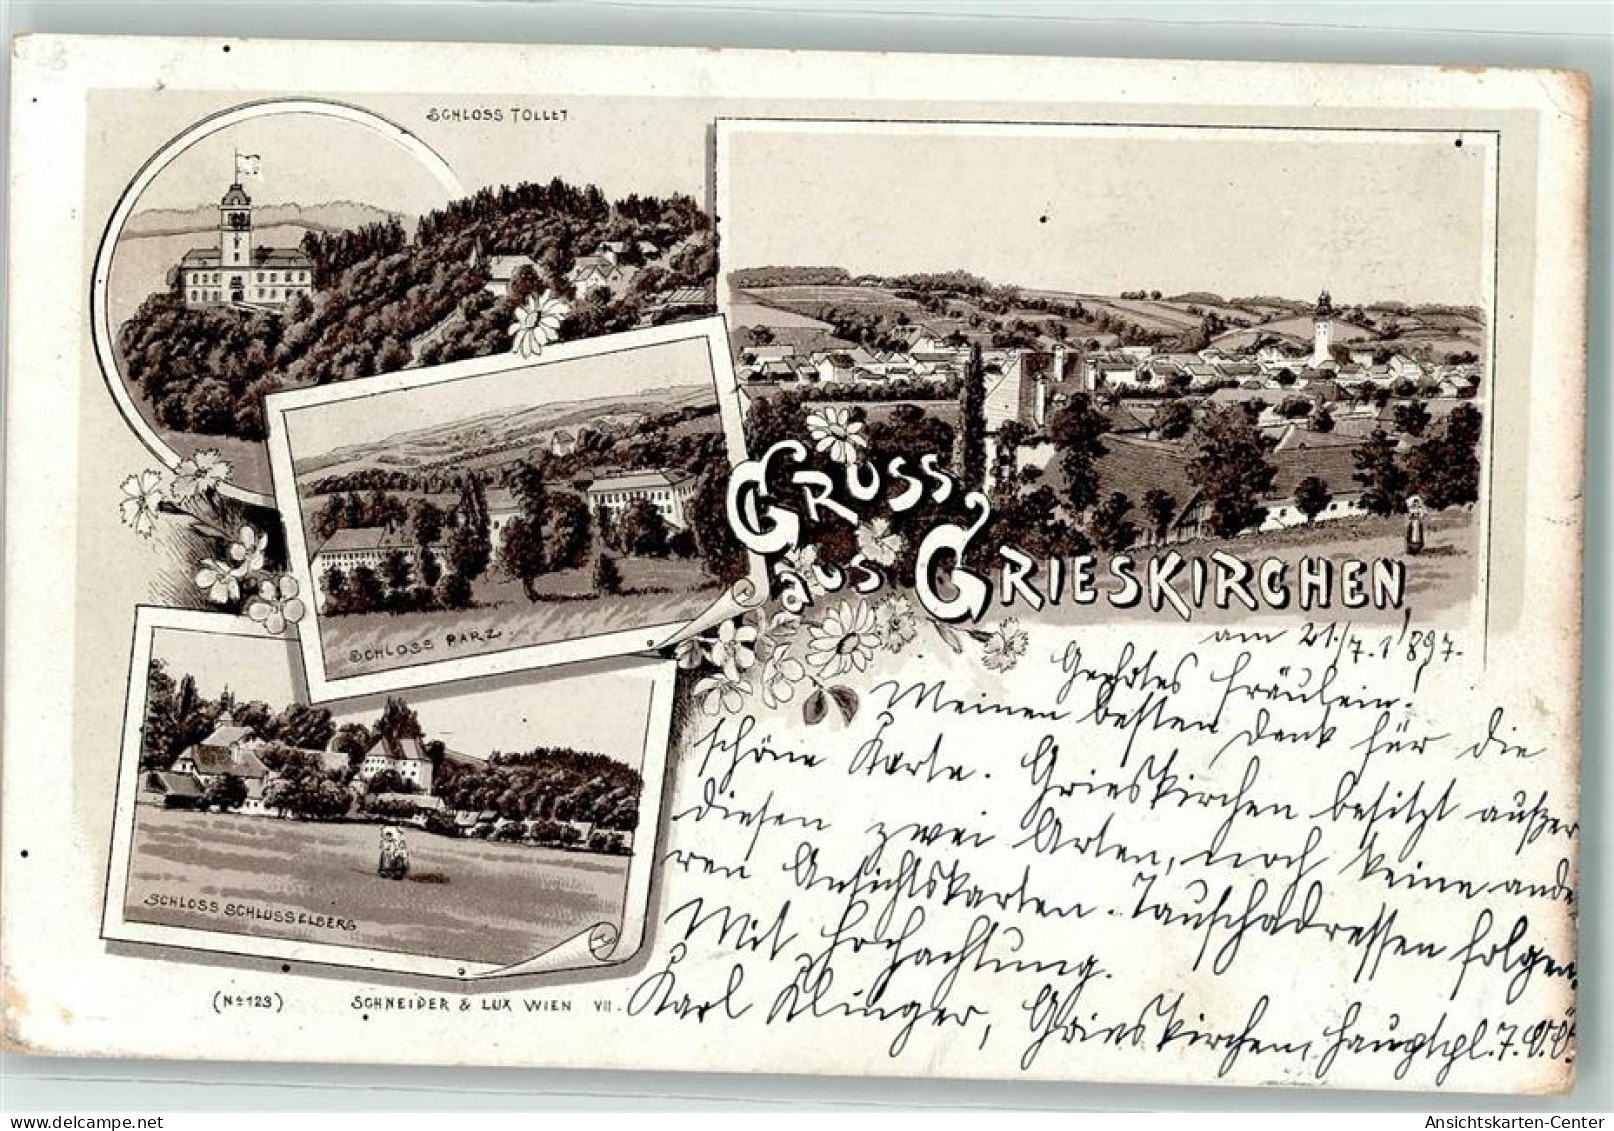 SCHLOSS TOLLET.
GRUSS
aus GRIESKIRCHEN,
SCHLOSS PARZ.
SCHLOSS SCHLÜSSELBERG
(No 123) SCHNEIDER & LUX WIEN VII.
am 21./7. 1897.
Geehrtes Fräulein!
Meinen besten Dank für die
schöne Karte. Grieskirchen besitzt außer
diesen zwei Arten, noch keine ande
ren Ansichtskarten. Tauschadressen folgen.
Mit Hochachtung.
Karl Klinger, Grieskirchen, Hauptpl. 7. O.Ö.
Ansichtskarten-Center